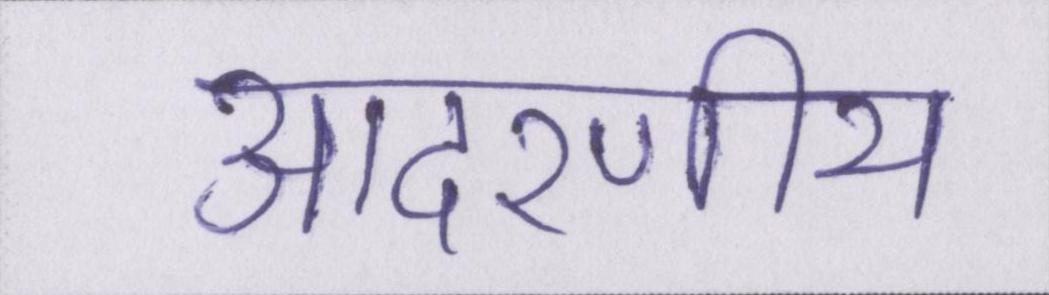 आदरणीय